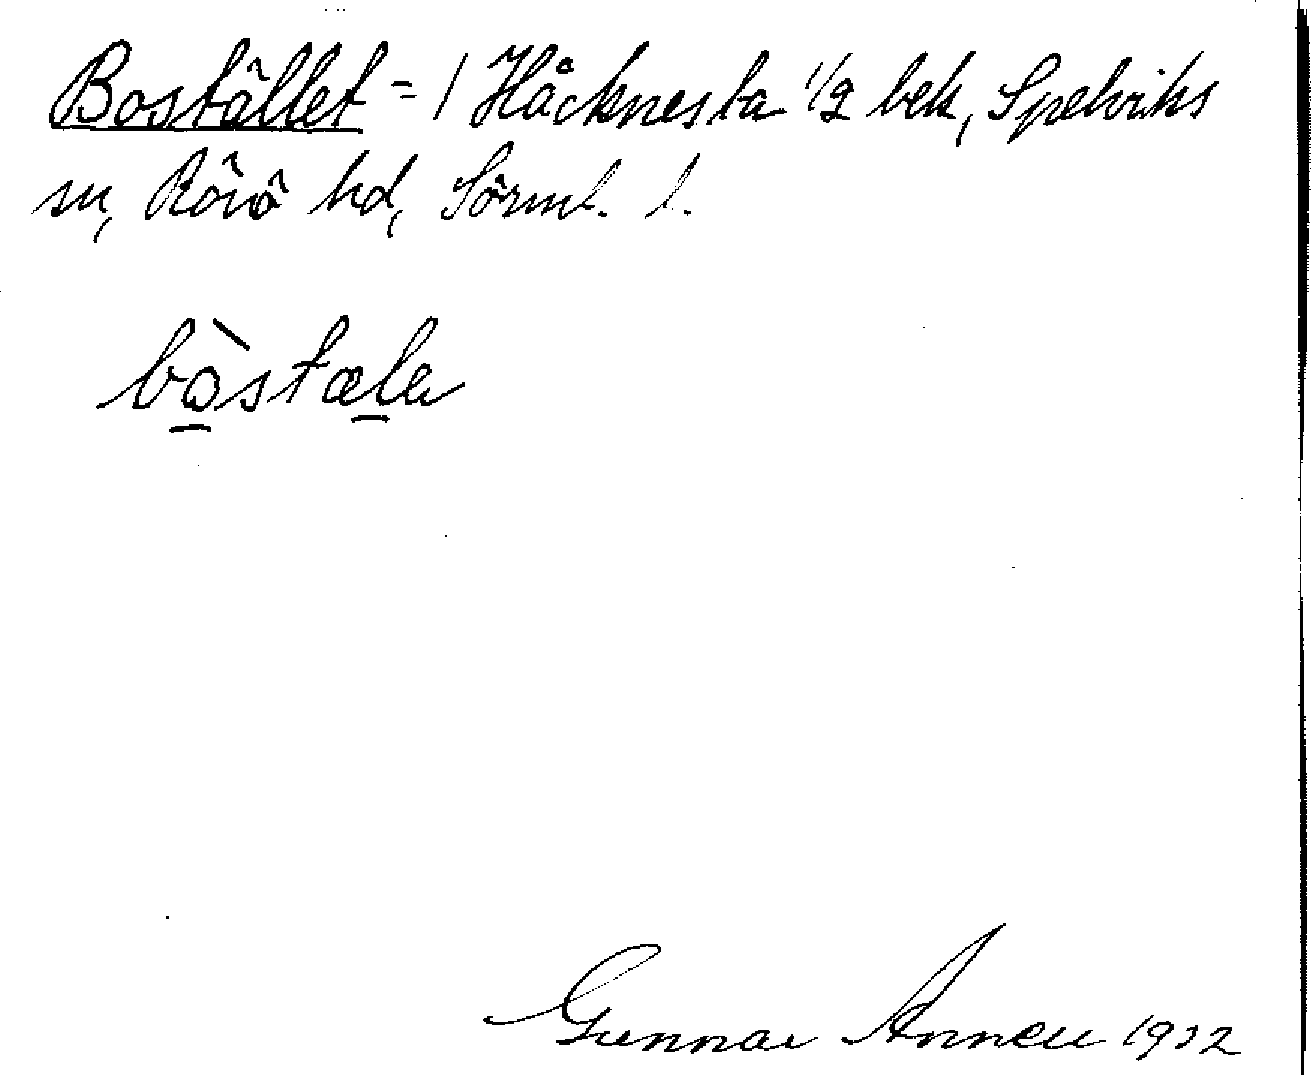 Bostället = 1 Håcknesta 1/2 bek, Spelviks
sn, Rönö hd, Sörml. l.
bo̱̊̀stæ̱la
Gunnar Annell 1932